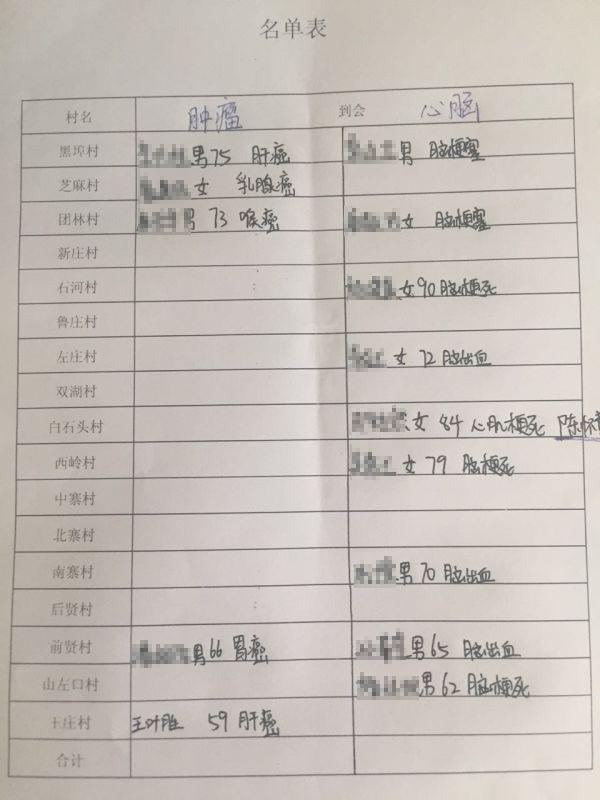 名单表
村名 肿瘤 到会 心脑
黑埠村 男75 肝癌 男 脑梗塞
芝麻村 女 乳腺癌
团林村 男 73 喉癌 女 脑梗塞
新庄村
石河村 女90 脑梗死
鲁庄村
左庄村 女 72 脑出血
双湖村
白石头村 女 84 心肌梗死 陈怀
西岭村 女 79 脑梗死
中寨村
北寨村
南寨村 男 70 脑出血
后贤村
前贤村 男66 胃癌 男65 脑出血
山左口村 男62 脑梗死
王庄村 王叶胜 59 肝癌
合计